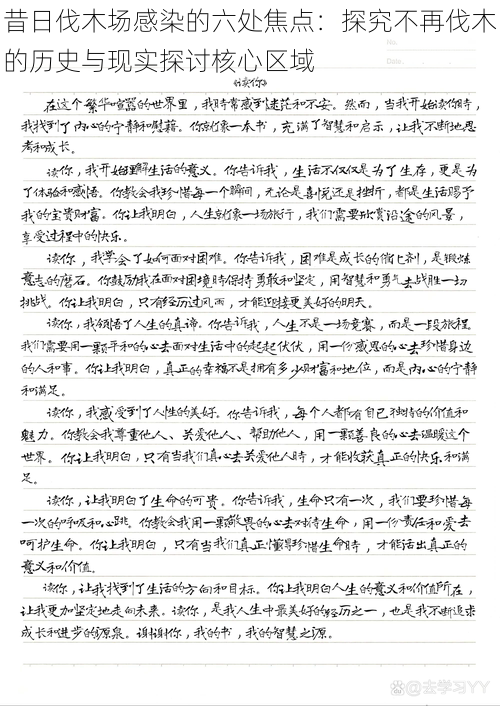 昔日伐木场感染的六处焦点：探究不再伐木
的历史与现实探讨核心区域
No.
Date.
《读你》
在这个繁华喧嚣的世界里，我时常感到迷茫和不安。然而，当我开始读你时，
我找到了内心的宁静和慰藉。你就像一本书，充满了智慧和启示，让我不断地思
考和成长。
读你，我开始理解生活的意义。你告诉我，生活不仅仅是为了生存，更是为
了体验和感悟。你教会我珍惜每一个瞬间，无论是喜悦还是挫折，都是生活赐予
我的宝贵财富。你让我明白，人生就像一场旅行，我们需要欣赏沿途的风景，
享受过程中的快乐。
读你，我学会了如何面对困难。你告诉我，困难是成长的催化剂，是锻炼
意志的磨石。你鼓励我在面对困境时保持勇敢和坚定，用智慧和勇气去战胜一切
挑战。你让我明白，只有经历过风雨，才能迎接更美好的明天。
读你，我领悟了人生的真谛。你告诉我，人生不是一场竞赛，而是一段旅程。
我们需要用一颗平和的心去面对生活中的起起伏伏，用一份感恩的心去珍惜身边
的人和事。你让我明白，真正的幸福不是拥有多少财富和地位，而是内心的宁静
和满足。
读你，我感受到了人性的美好。你告诉我，每个人都有自己独特的价值和
魅力。你教会我尊重他人、关爱他人、帮助他人，用一颗善良的心去温暖这个
世界。你让我明白，只有当我们真心去关爱他人时，才能收获真正的快乐和满
足。
读你，让我明白了生命的可贵。你告诉我，生命只有一次，我们要珍惜每
一次的呼吸和心跳。你教会我用一颗敬畏的心去对待生命，用一份责任和爱去
呵护生命。你让我明白，只有当我们真正懂得珍惜生命时，才能活出真正的
意义和价值。
读你，让我找到了生活的方向和目标。你让我明白人生的意义和价值所在，
让我更加坚定地走向未来。读你，是我人生中最美好的经历之一，也是我不断追求
成长和进步的源泉。谢谢你，我的书，我的智慧之源。
@去学习YY